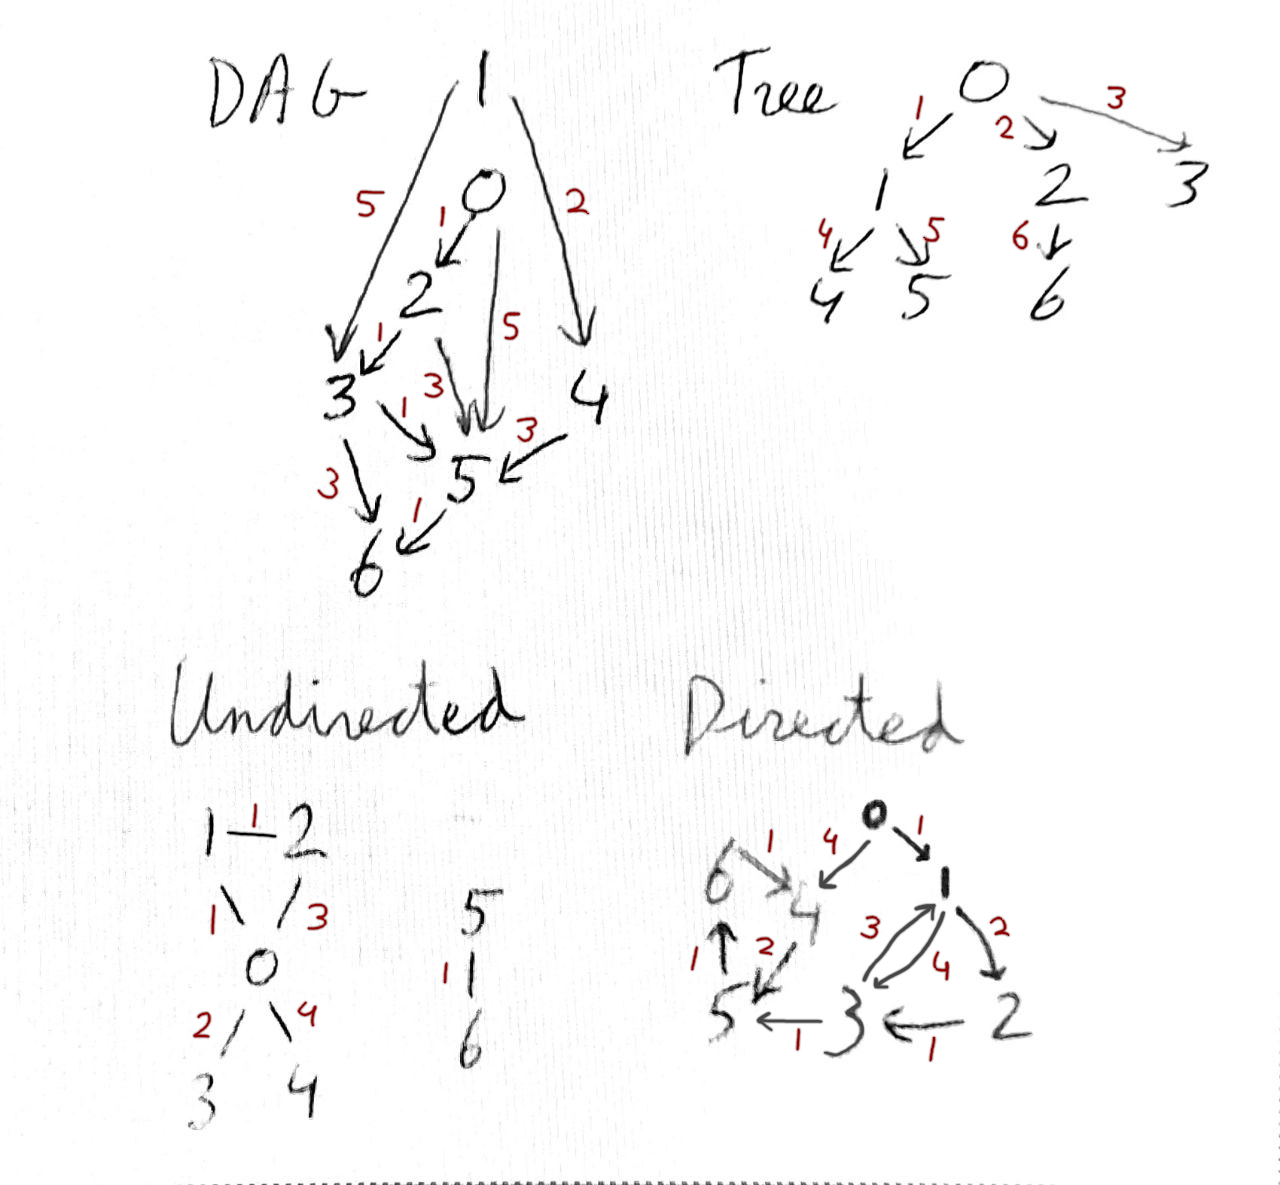 DAG
1
5 1 0 2
2 5
1 3
3 1 4
3 5 3
1
6
Tree
0
1 2 3
1 2 3
4 5 6
4 5 6
Undirected
1 1 2
1 3
0
2 4
3 4
5
1
6
Directed
0
1 4 1
6 4 1
3 2
1 2 4
5 1 3 1 2